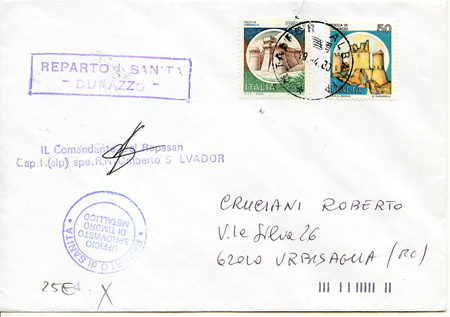 REPARTO SANITA'
- DURAZZO -
50
ITALIA
ITALIA
IL Comandante del Repasan
Cap.f.(alp) spe.R.N. Umberto S LVADOR
REPARTO di SANITA'
UFFICIO
SPROVVISTO
DI TIMBRO
METALLICO
CRUCIANI ROBERTO
V.le Silva 26
62010 URBISAGLIA (MC)
25€
X